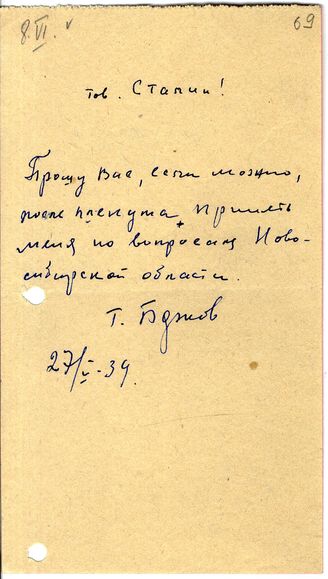 8.VI. v
69
тов. Сталин!
Прошу Вас, если можно,
после пленума принять
меня по вопросам Ново-
сибирской области.
Г.
27/V-39.